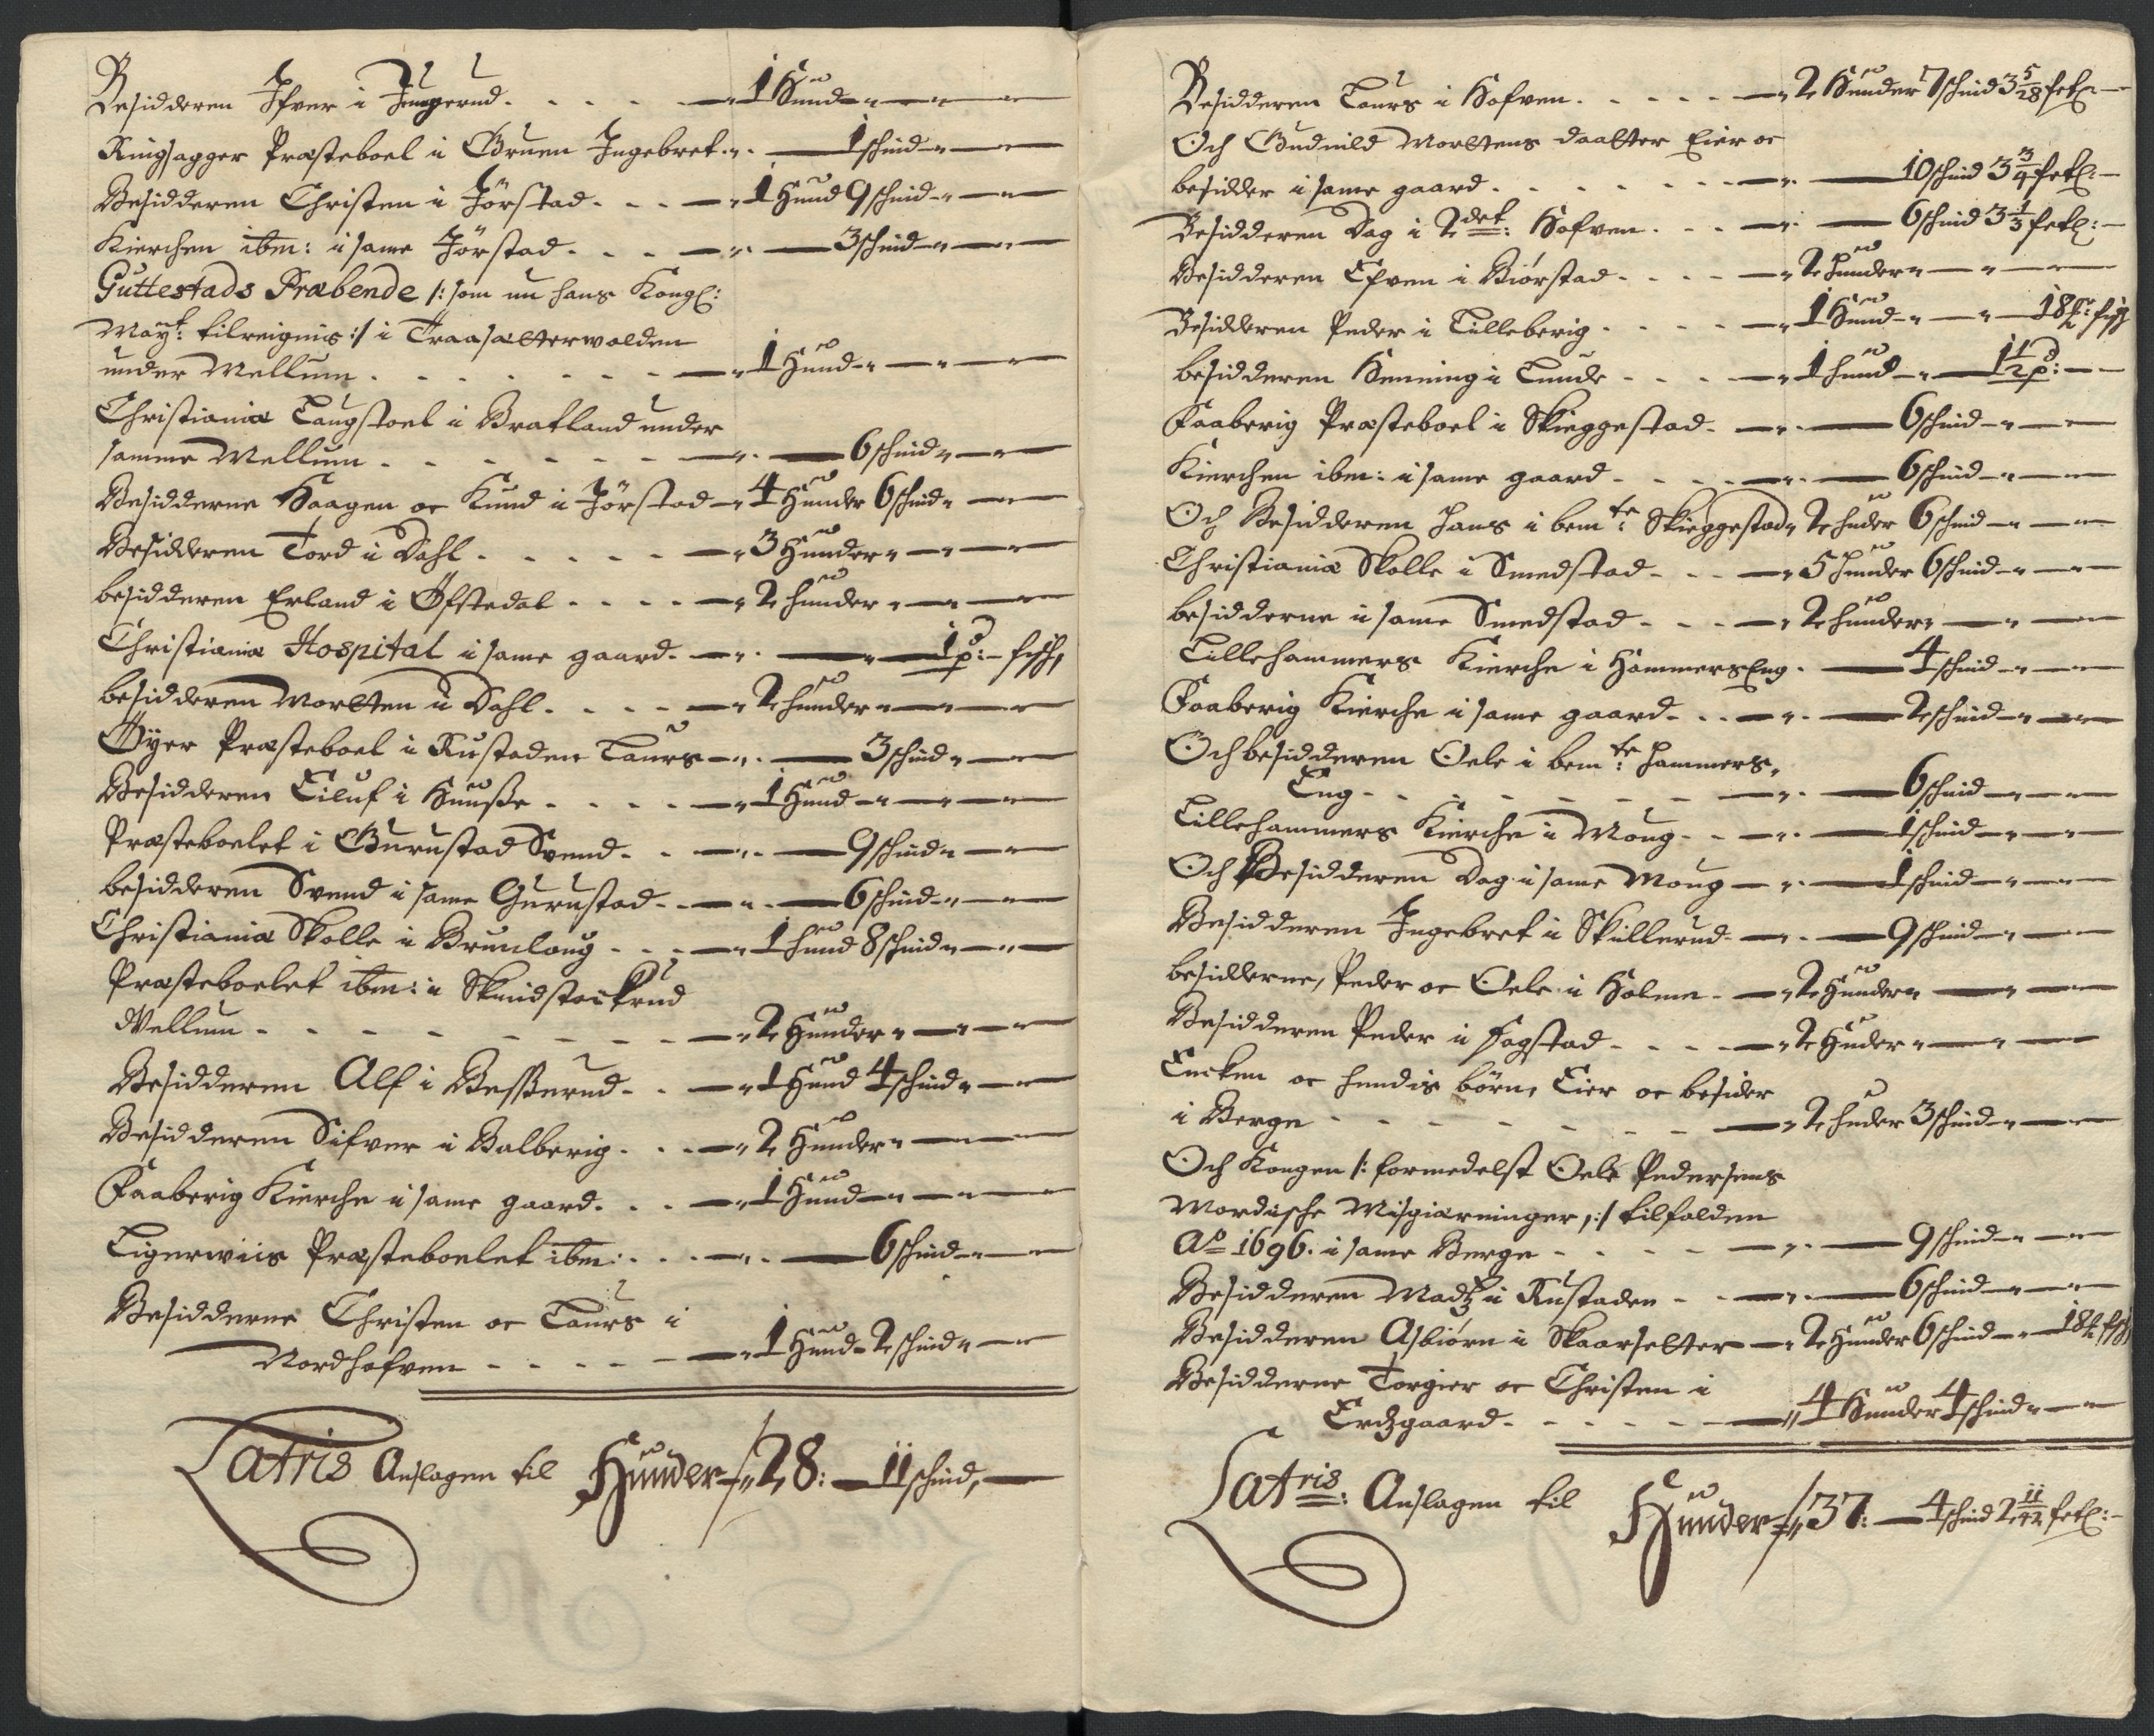 Besidderen Ifver i Jungerud - - - - 1 Hund
Ringsagger Præsteboel i Gruen Ingebret - 1 schind
Besidderen Christen i Jörstad - - - 1 Hund 9 schind
Kierchen ibm: i same Jörstad - - - 3 schind
Guttestads Præbende /: som nu hans Kongl:
Mayt: tilreignis :/ i Traasætterwolden
under Mellum - - - - 1 Hund
Christiania Laugstoel i Bratland under
samme Mellum - - - - 6 schind
Besidderne Haagen oc Knud i Jörstad - 4 Hunder 6 schind
Besidderen Tord i Dahl - - - - 3 Hunder
besidderen Erland i Öfstedal - - - - 2 hunder
Christiania Hospital i same gaard - 1 p: fisch
besidderen Morten i Dahl - - - - 2 hunder
Öyer Præsteboel i Rustaden Laurs - 3 schind
Besidderen Eiluf i Hunße - - - - 1 Hund
Præsteboelet i Gurustad Svend - - 9 schind
besidderen Svend i same Gurustad - - 6 schind
Christiania Skolle i Brunloug - - - 1 hund 8 schind
Præsteboelet ibm: i
Mellum - - - - 2 Hunder
Besidderen Alf i Beßerud - - 1 Hund 4 schind
Besidderen Sifver i Balberig - - - 2 Hunder
Faaberig Kierche i same gaard - - - 1 Hund
Ligerwiis Præsteboelet ibm: - - - 6 schind
Besidderne Christen oc Laurs i
Nordhofven - - - - 1 Hund 2 schind
Latris Anslagen til Hunder 28: 11 schind,
Besidderen Laurs i Hofven - - - - 2 Hunder 7 schind 3 5/28 fetl:
Och Gudnild Mortens daatter Eier oc
besidder i same gaard - - - - 10 schind 3 3/4 fetl:
Besidderen Dag i 2det: Hofven - - - 6 schind 3 1/3 fetl:
Besidderen Efven i Biörstad - - - - 2 hunder
Besidderen Peder i Lilleberig - - - - 1 Hund 18 fisch
besidderen Henning i Lunde - - - 1 hund 1 1/2 p:
Faaberig Præsteboel i Skieggestad - 6 schind
Kierchen ibm: i same gaard - - - - 6 schind
Och Besidderen Hans i bemte: Skieggestad 2 huder 6 schind
Christiania Skolle i Smedstad - - - 5 hunder 6 schind
besidderne i same Smedstad - - - 2 hunder
Lillehammers Kierche i HammersEng - 4 schind
Faaberig Kierche i same gaard - - - 2 schind
Och besidderen Oele i bemte: Hammers,
Eng - - - - 6 schind
Lillehammers Kierche i Moug - - - 1 schind
Och Besidderen Dag i same Moug - 1 schind
Besidderen Ingebret i Skullerud - 9 schind
besidderne, Peder oc Oele i Holme - 2 Hunder
Besidderen Peder i Fogstad - - - - 2 Huder
Encken oc hendis börn, Eier oc besider
i Berge - - - - 2 huder 3 schind
Och Kongen /: formedelst Oele Pedersens
Mordische Misgiærninger, :/ tilfalden
Ao 1696. i same Berge - - - - 9 schind
Besidderen Madtz i Rustaden - - 6 schind
Besidderen Asbiörn i Skaarsetter - 2 Hunder 6 schind 18 fisch
Besidderne Torgier oc Christen i
Erdzgaard - - - - 4 Hunder 4 schind
Latris: Anslagen til Hunder 37: 4 schind 2 11/42 fetl: